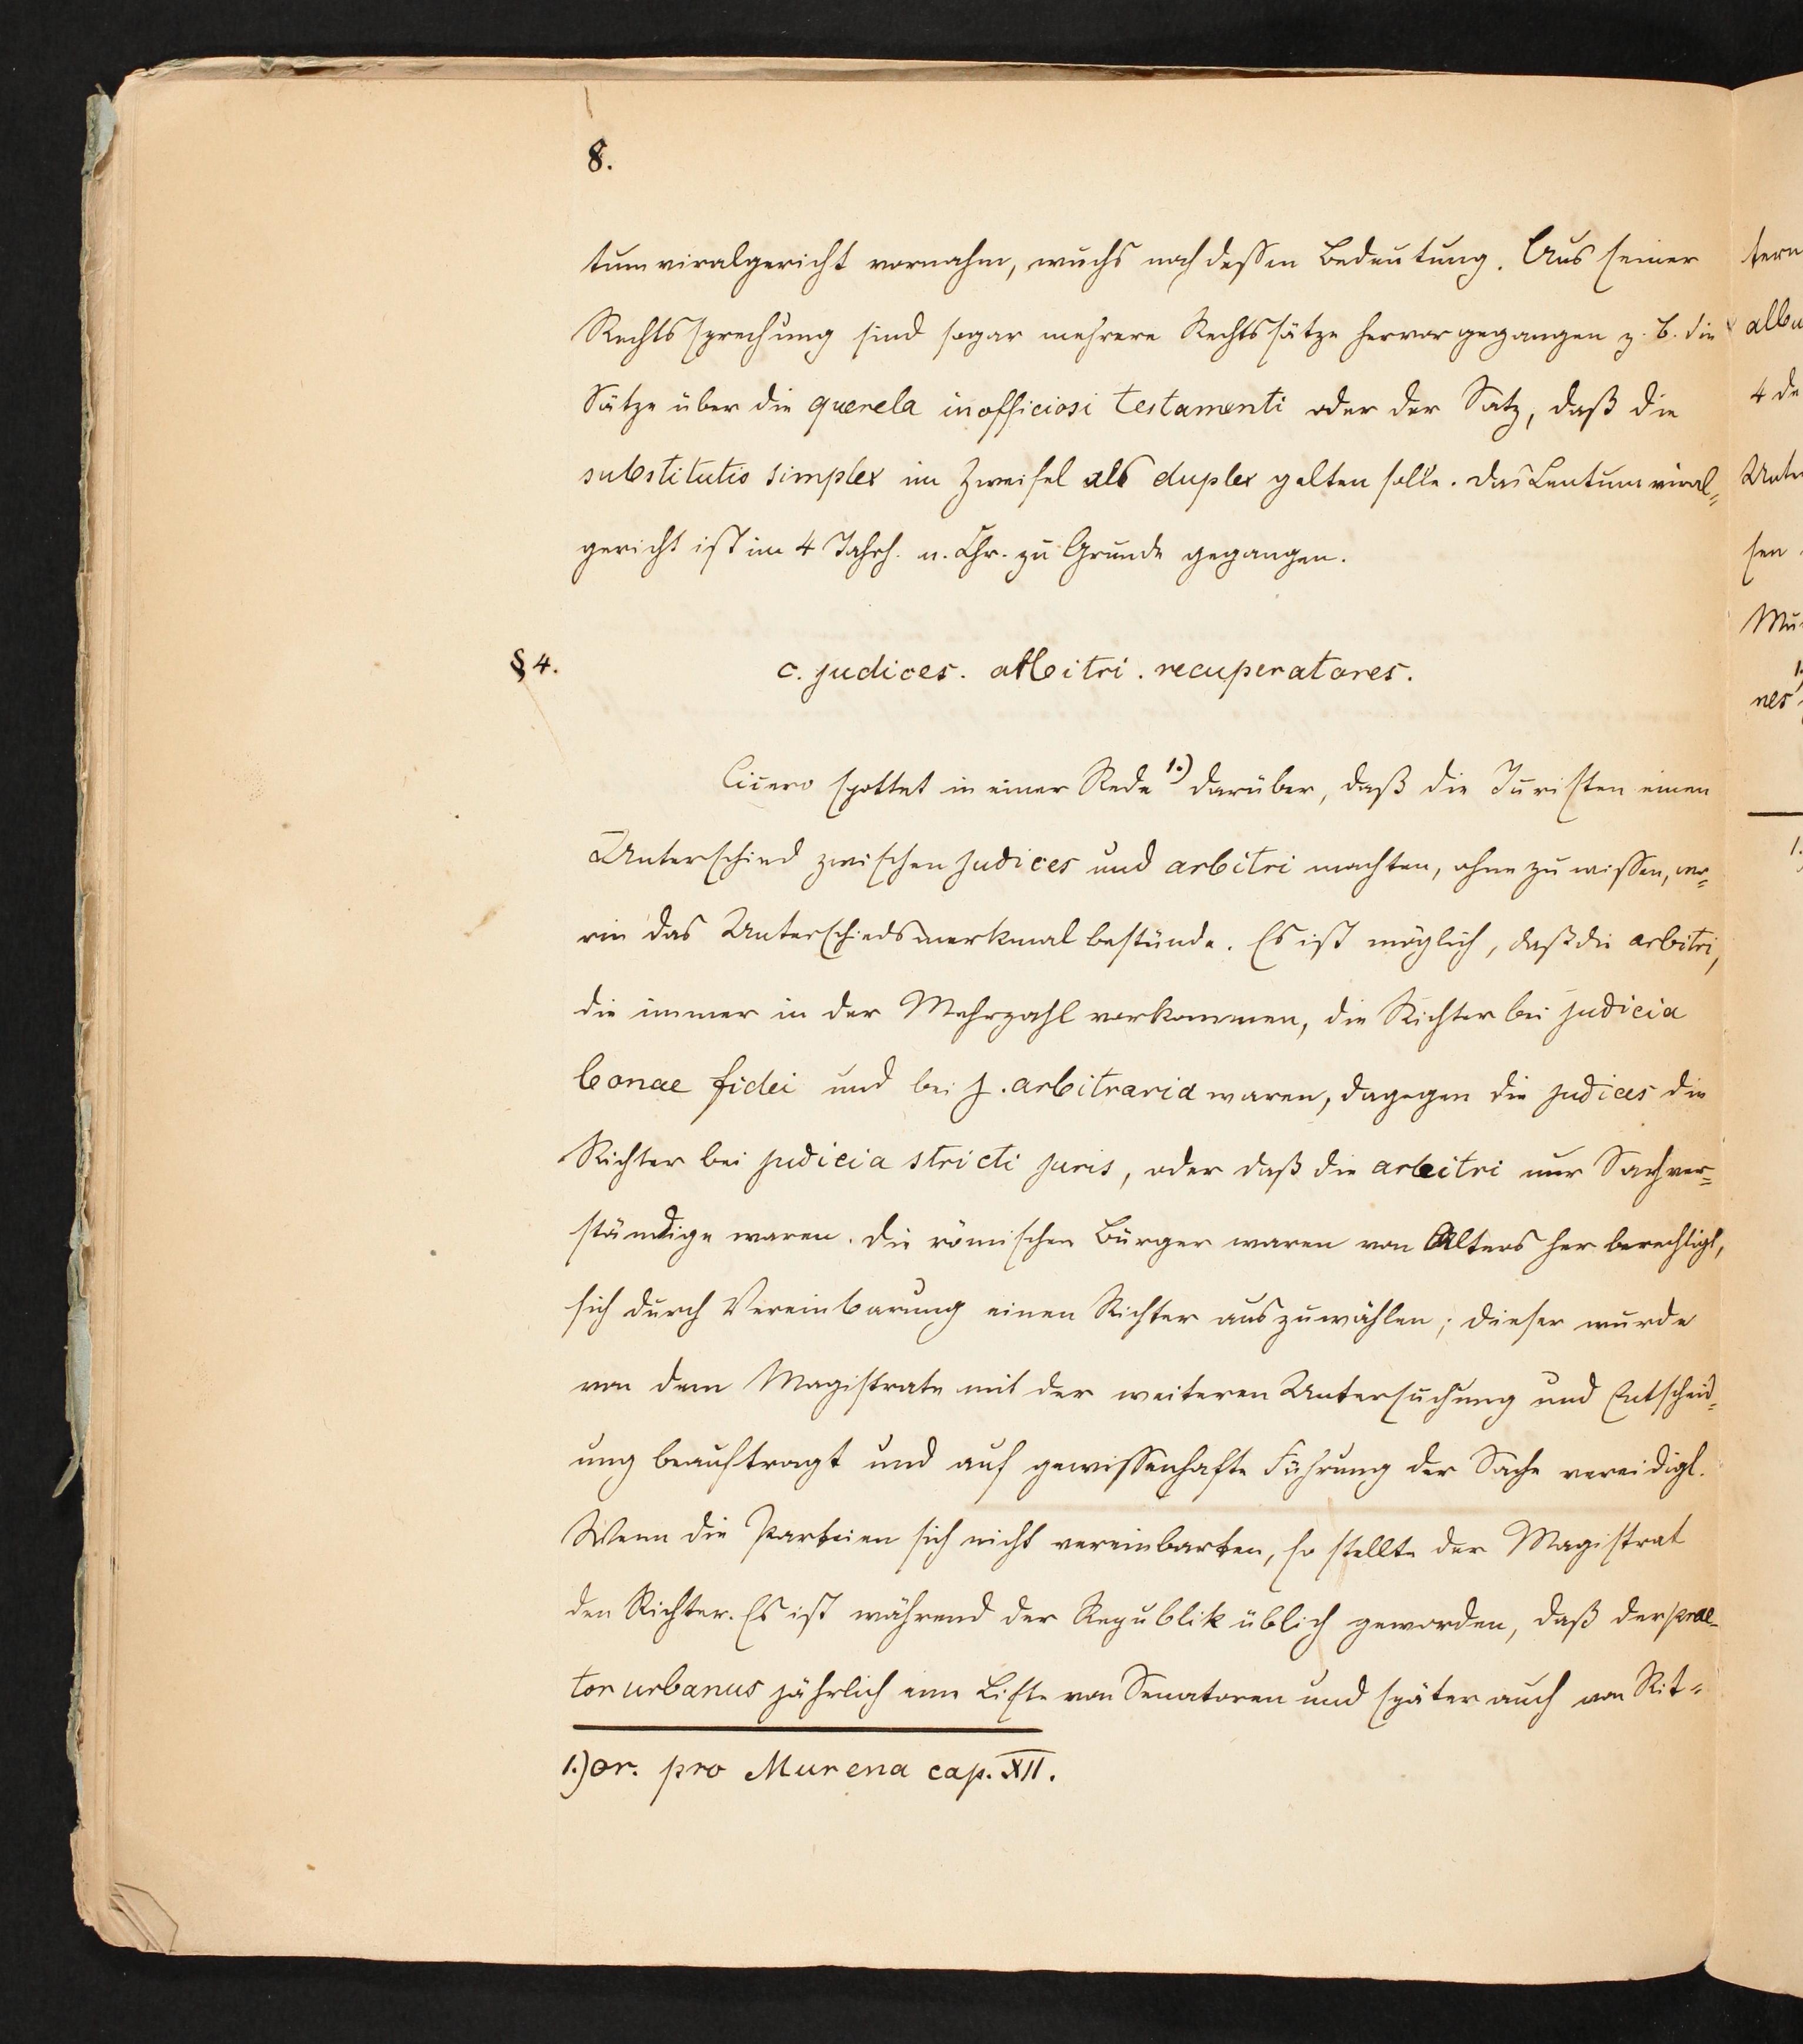 8.
tumviralgericht vornahm, wuchs noch dessen Bedeutung. Aus seiner
Rechtssprechung sind sogar mehrere Rechtssätze hervorgegangen z. B. die
Sätze über die querela inofficiosi testamenti oder der Satz, daß die
substitutio simplex im Zweifel als duplex gelten solle. Das Centumviral=
gericht ist im 4 Jahrh. n. Chr. zu Grunde gegangen.
§ 4.
c. judices. arbitri. recuperatores.
Cicero spottet in einer Rede 1.) darüber, daß die Juristen einen
Unterschied zwischen judices und arbitri machten, ohne zu wissen, wo=
rin das Unterschiedsmerkmal bestünde. Es ist möglich, daß die arbitri,
die immer in der Mehrzahl vorkommen, die Richter bei judicia
bonae fidei und bei j. arbitraria waren, dagegen die judices die
Richter bei judicia stricti juris, oder daß die arbitri nur Sachver=
ständige waren. Die römischen Bürger waren von Alters her berechtigt,
sich durch Vereinbarung einen Richter auszuwählen; dieser wurde
von dem Magistrate mit der weiteren Untersuchung und Entscheid=
ung beauftragt und auf gewissenhafte Führung der Sache vereidigt.
Wenn die Parteien sich nicht vereinbarten, so stellte der Magistrat
den Richter. Es ist während der Republik üblich geworden, daß der prae-
tor urbanus jährlich eine Liste von Senatoren und später auch von Rit=
1.) or. pro Murena cap. XII.
tern
4 de
sen
nes